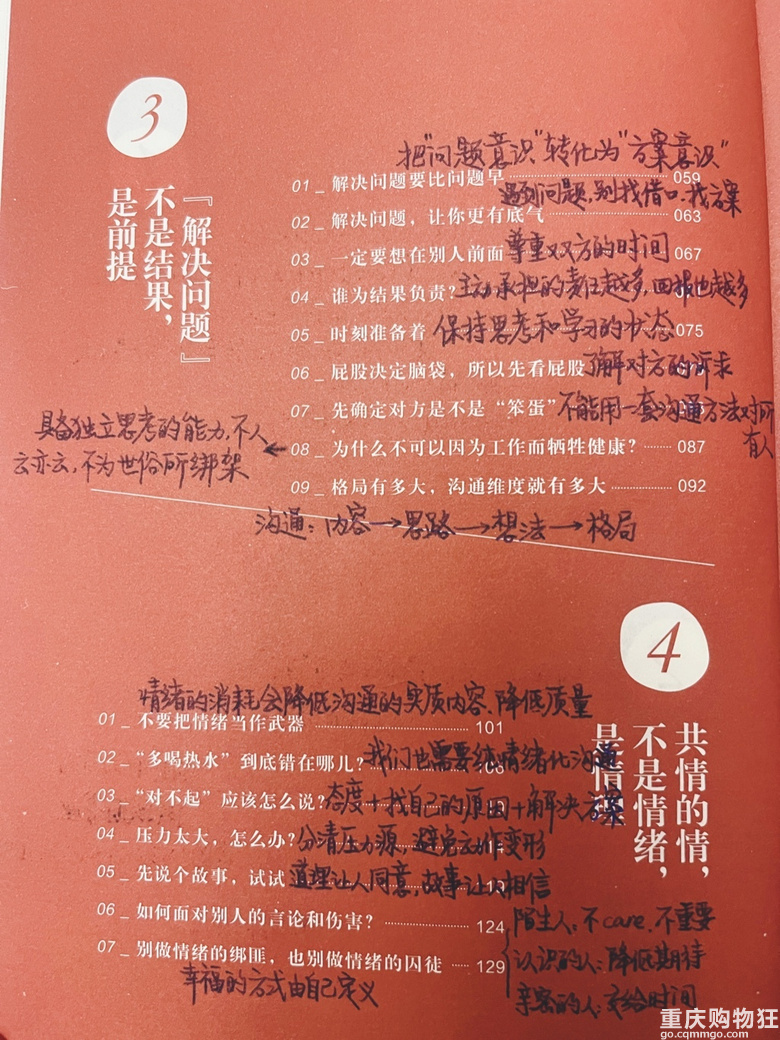 3
『解决问题』
不是结果，
是前提
把"问题意识"转化为"方案意识"
01 _ 解决问题要比问题早 059
遇到问题,别找借口,找方案
02 _ 解决问题，让你更有底气 063
03 _ 一定要想在别人前面 尊重双方的时间 067
04 _ 谁为结果负责？主动承担的责任越多,回报也越多
05 _ 时刻准备着 保持思考和学习的状态 075
06 _ 屁股决定脑袋，所以先看屁股 了解对方的诉求
07 _ 先确定对方是不是“笨蛋” 不能用一套沟通方法对所
有人
具备独立思考的能力,不人
云亦云,不为世俗所绑架
08 _ 为什么不可以因为工作而牺牲健康？ 087
09 _ 格局有多大，沟通维度就有多大 092
沟通：内容→思路→想法→格局
4
共情的情，
不是情绪，
是情
情绪的消耗会降低沟通的实质内容、降低质量
01 _ 不要把情绪当作武器 101
02 _ “多喝热水”到底错在哪儿？我们也需要纯情绪化沟通
03 _ “对不起”应该怎么说？态度+找自己的原因+解决方案
04 _ 压力太大，怎么办？分清压力源,避免动作变形
05 _ 先说个故事，试试 道理让人同意,故事让人相信
06 _ 如何面对别人的言论和伤害？ 124
陌生人:不care、不重要
认识的人:降低期待
亲密的人:交给时间
07 _ 别做情绪的绑匪，也别做情绪的囚徒 129
幸福的方式由自己定义
重庆购物狂
go.cqmmgo.com